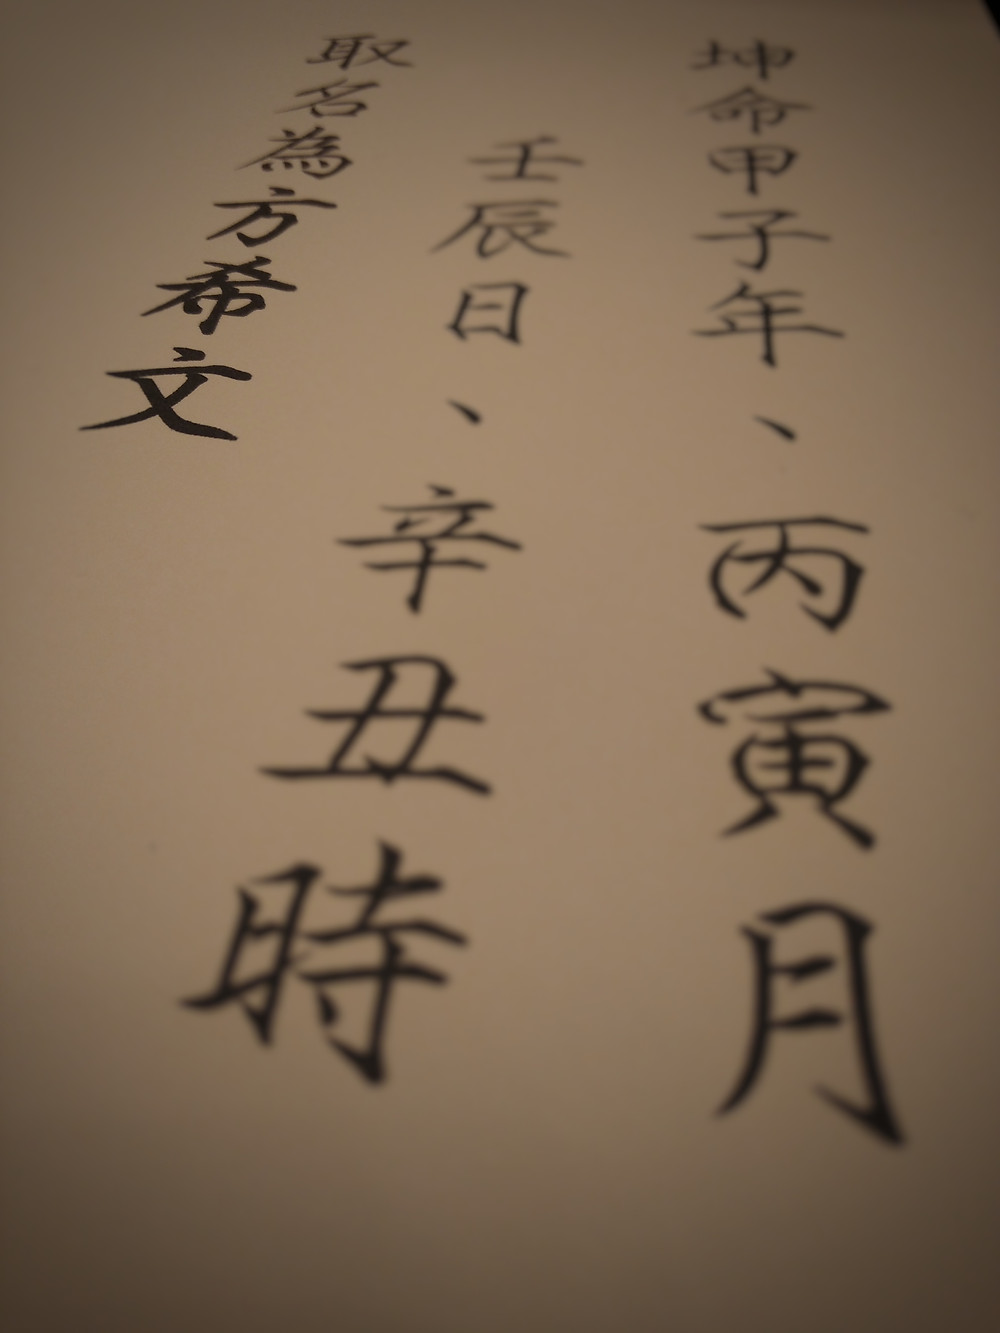 坤命甲子年、丙寅月
壬辰日、辛丑時
取名為方希文